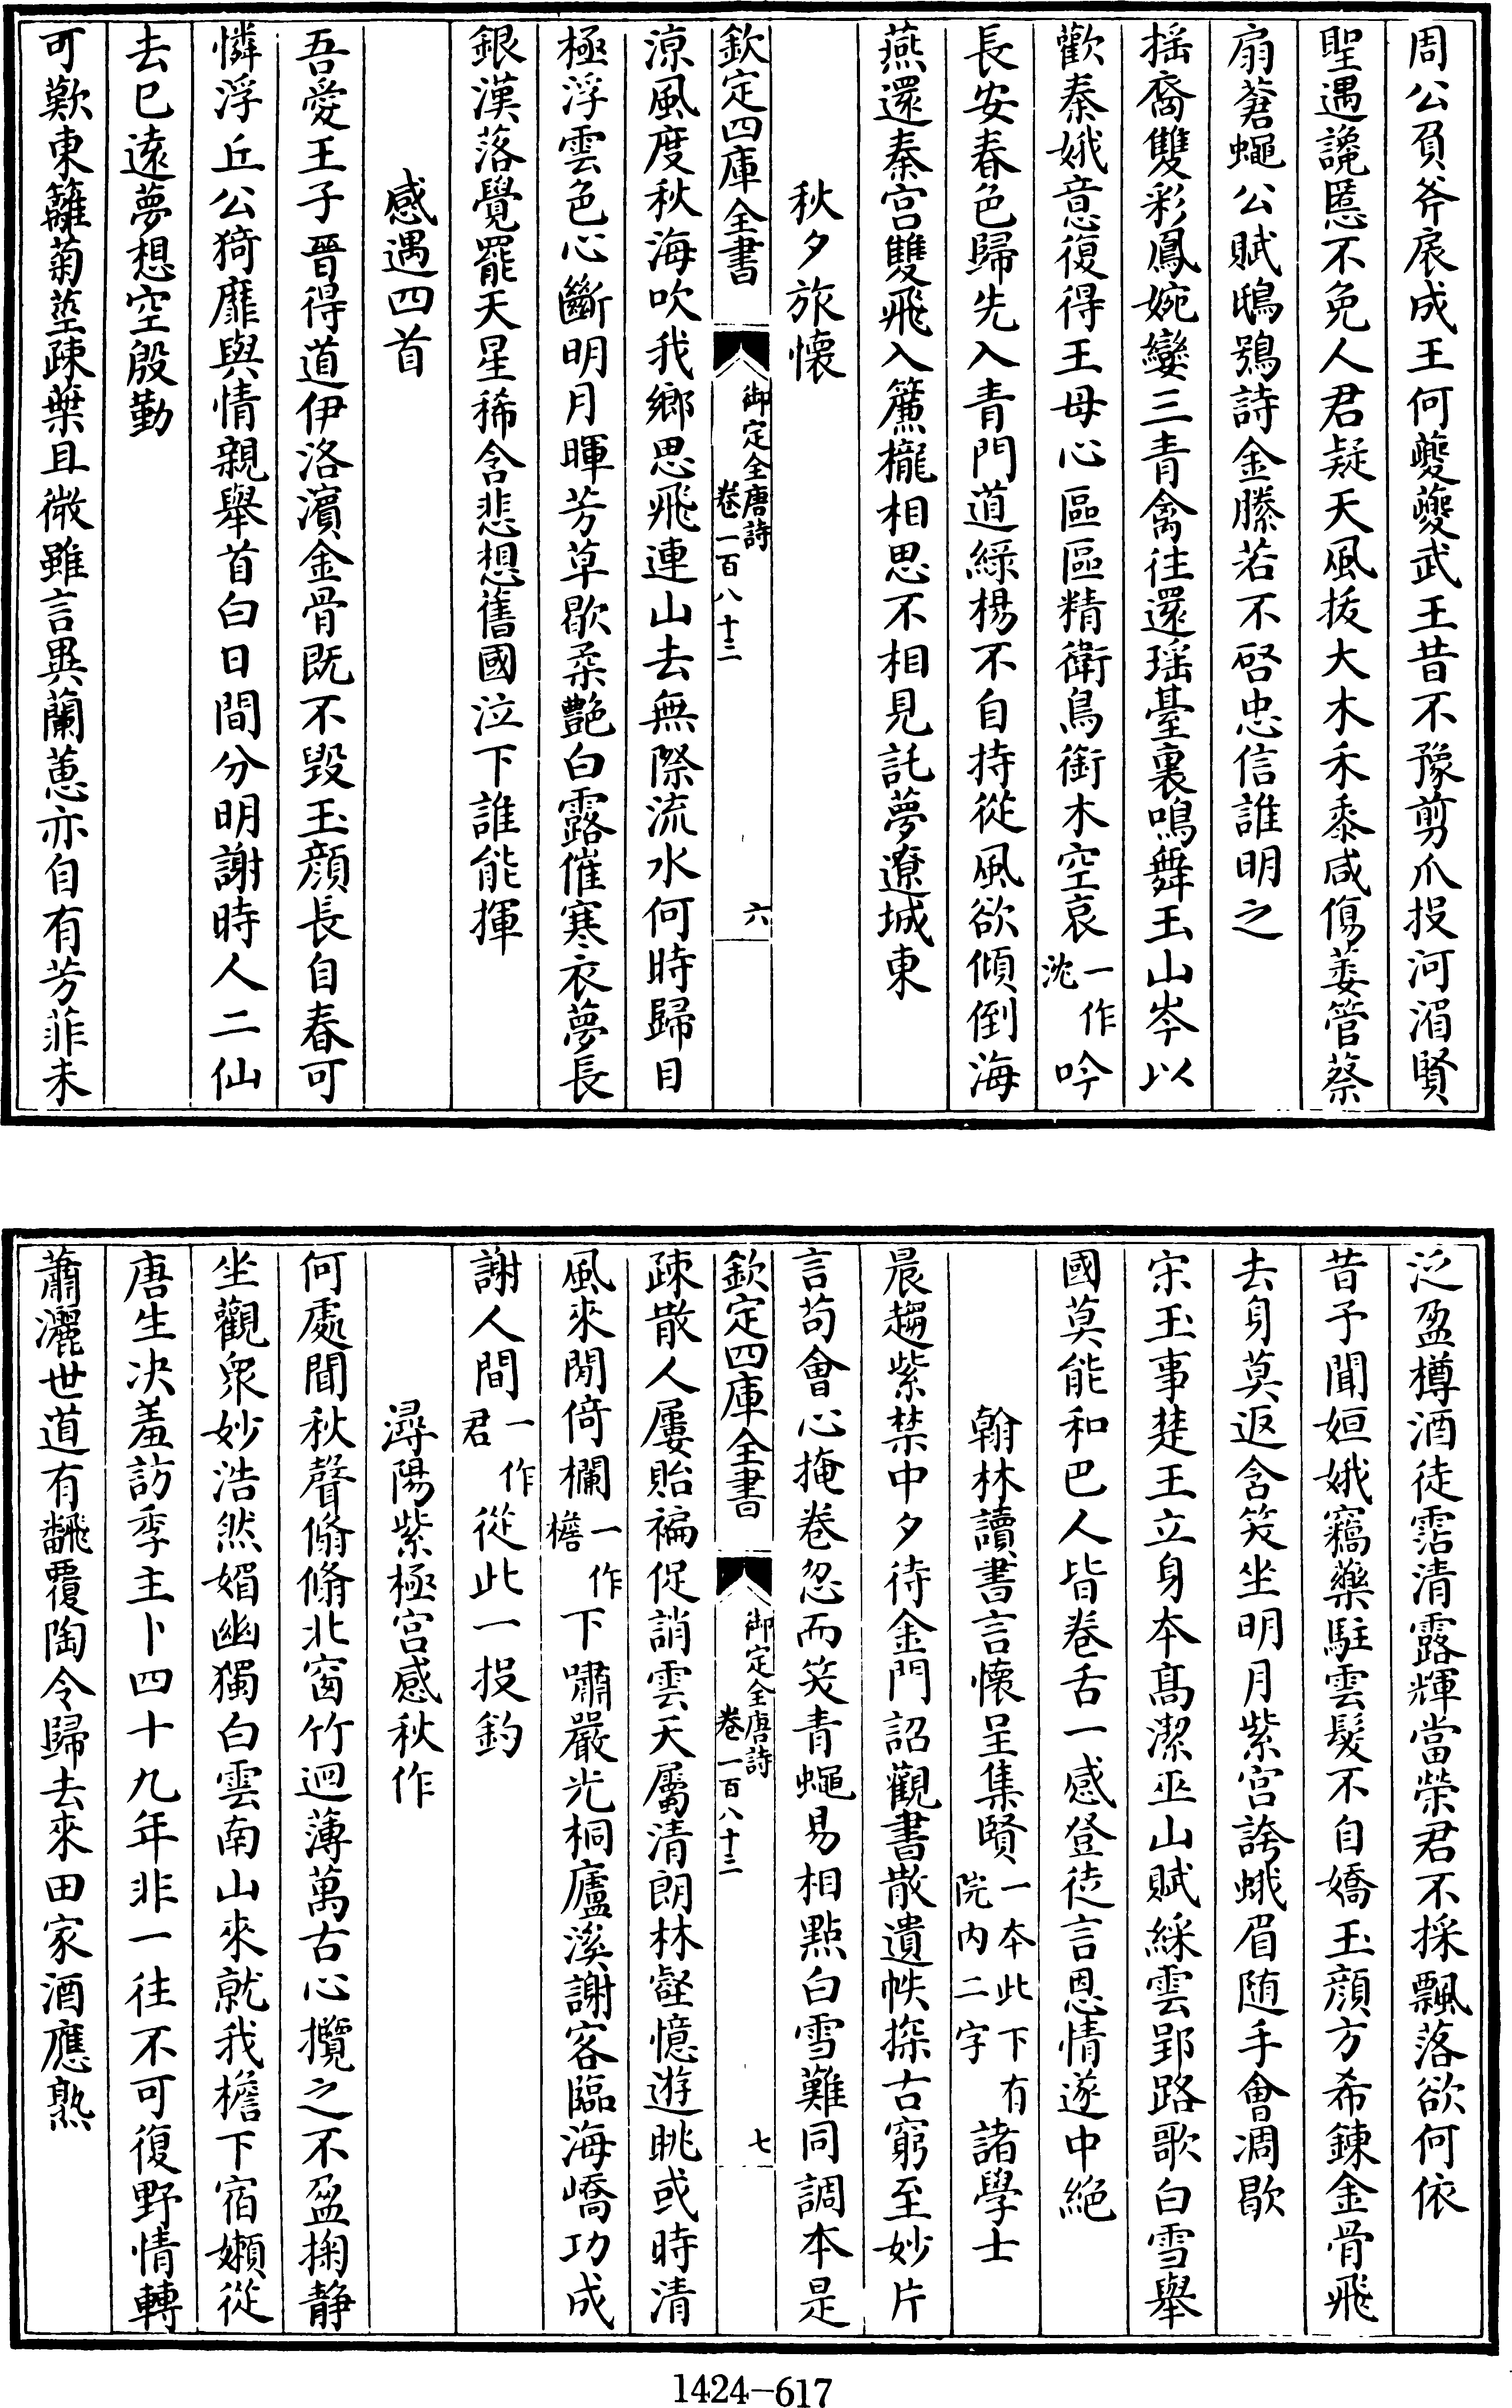 周公負斧扆成王何夔夔武王昔不豫剪爪投河湄賢
聖遇讒慝不免人君疑天風拔大木禾黍咸傷萎管蔡
扇蒼蠅公賦鴟鴞詩金縢若不啓忠信誰明之
揺裔雙彩鳳婉孌三青禽往還瑶臺裏鳴舞玉山岑以
歡秦娥意復得王母心區區精衛鳥銜木空哀一作沈吟
長安春色歸先入青門道綠楊不自持從風欲傾倒海
燕還秦宫雙飛入簾櫳相思不相見託夢遼城東
秋夕旅懷
欽定四庫全書 御定全唐詩卷一百八十三 六
凉風度秋海吹我鄉思飛連山去無際流水何時歸目
極浮雲色心斷明月暉芳草歇柔艷白露催寒衣夢長
銀漢落覺罷天星稀含悲想舊國泣下誰能揮
感遇四首
吾愛王子晉得道伊洛濱金骨既不毁玉顔長自春可
憐浮丘公猗靡與情親舉首白日間分明謝時人二仙
去已遠夢想空殷勤
可歎東籬菊莖疎葉且微雖言異蘭蕙亦自有芳菲未
泛盈樽酒徒霑清露輝當榮君不採飄落欲何依
昔予聞姮娥竊藥駐雲髮不自嬌玉顔方希鍊金骨飛
去身莫返含笑坐明月紫宫誇蛾眉随手會凋歇
宋玉事楚王立身本髙潔巫山賦綵雲郢路歌白雪舉
國莫能和巴人皆卷舌一感登徒言恩情遂中絶
翰林讀書言懷呈集賢一本此下有院内二字諸學士
晨趨紫禁中夕待金門詔觀書散遺帙探古窮至妙片
言苟會心掩卷忽而笑青蠅易相點白雪難同調本是
欽定四庫全書 御定全唐詩卷一百八十三 七
疎散人屢貽褊促誚雲天屬清朗林壑憶遊眺或時清
風來閒倚欄一作檐下嘯嚴光桐廬溪謝客臨海嶠功成
謝人間一作君從此一投釣
潯陽紫極宫感秋作
何處聞秋聲翛翛北窗竹迴薄萬古心攬之不盈掬静
坐觀衆妙浩然媚幽獨白雲南山來就我檐下宿嬾從
唐生决羞訪季主卜四十九年非一往不可復野情轉
蕭灑世道有翻覆陶令歸去來田家酒應熟
1424-617